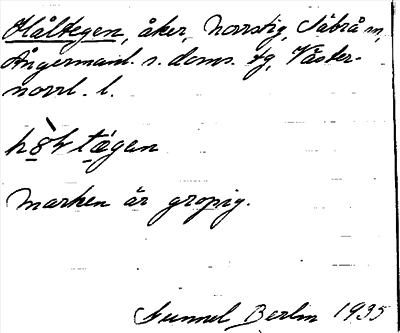 Håltegen, åker, Norrstig, Säbrå sn,
Ångermanl. s. doms. tg, Väster-
norrl. l.
hòl tægen
Marken är gropig.
Gunnel Berlin 1935